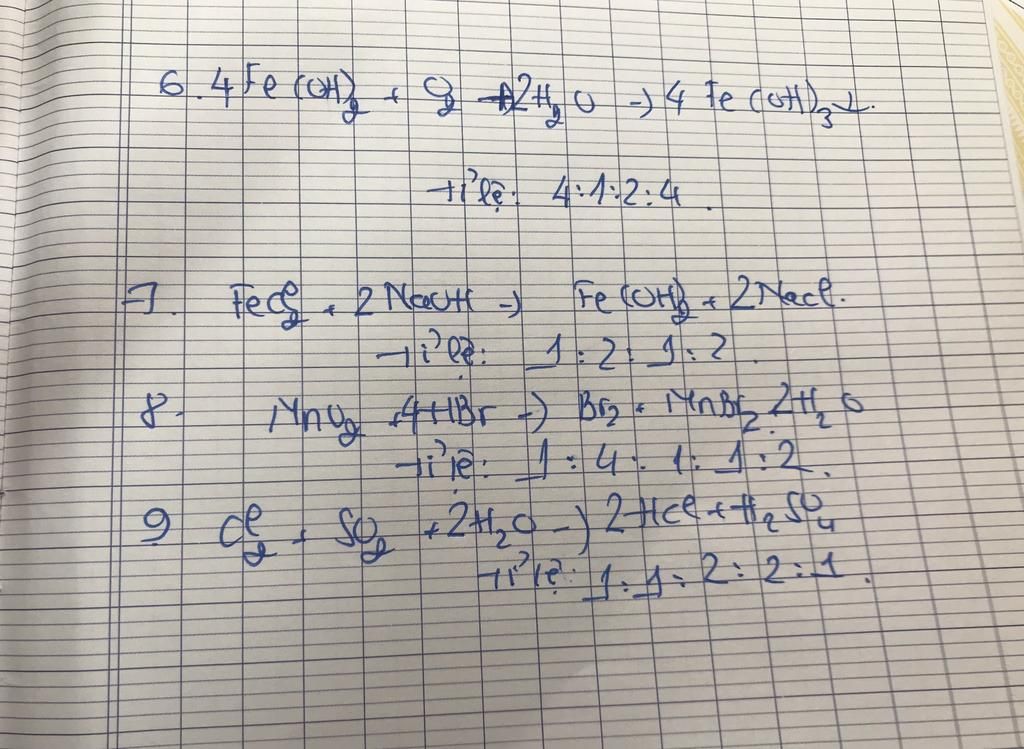 6. 4Fe(OH)₂ + O₂ + 2H₂O → 4Fe(OH)₃↓.
tỉ lệ: 4:1:2:4.
7. FeCl₂ + 2NaOH → Fe(OH)₂ + 2NaCl.
tỉ lệ: 1:2:1:2.
8. MnO₂ + 4HBr → Br₂ + MnBr₂ 2H₂O
tỉ lệ: 1:4:1:1:2.
9 Cl₂ + SO₂ + 2H₂O → 2HCl + H₂SO₄
tỉ lệ: 1:1:2:2:1.